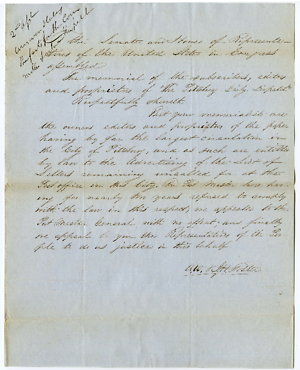 To the Senate and House of Representa-
tives of the United States in Congress
assembled
The memorial of the subscribers, editors
and proprietors of the Pittsburg Daily Dispatch
Respectfully sheweth
That your memorialists are
the owners editors and proprietors of the paper
having by far the largest circulation in
the City of Pittsburg, and as such are entitled
by law to the advertising of the list of
Letters remaining uncalled for at the
Post office in this City, the Post Master here hav-
ing for nearly two years refused to comply
with the law in this respect, we appealed to the
Post Master General with no effect, and finally
we appeal to you the Representatives of the Peo-
ple to do us justice in this behalf